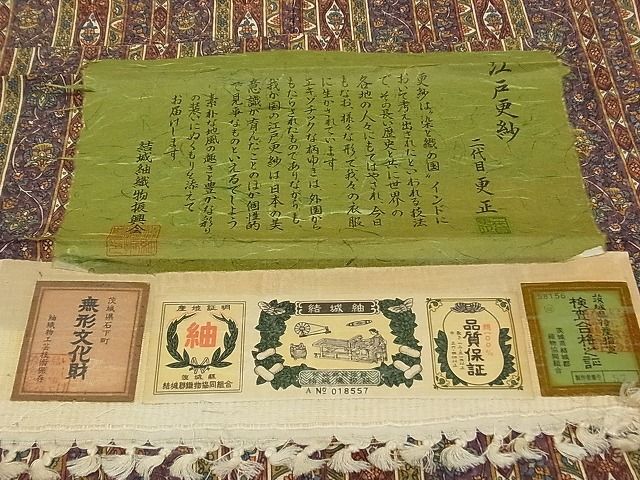 江戸更紗
二代目 更正
更紗は、染と織の国、インドに
おいて考え出されたといわれる技法
で、その長い歴史と共に世界の
各地の人々にもてはやされ、今日
もなお、様々な形で我々の衣服
に生かされています
エキゾチックな柄ゆきは外国から
もたらされたものでありながらも、
我が国の江戸更紗は日本の美
意識が育んだことのほか個性的
で見事なものといえるでしょう
素朴な地風の趣きと豊かな彩り
の装いにぬくもりを添えて
お届けします
結城紬織物振興会
茨城県石下町
無形文化財
紬織物工芸技術保存
産地証明
紬
茨城県
結城郡織物協同組合
結城紬
A No 018557
絹100%
品質保証
58156
茨城県
検査合格之証
茨城県結城郡
織物協同組合